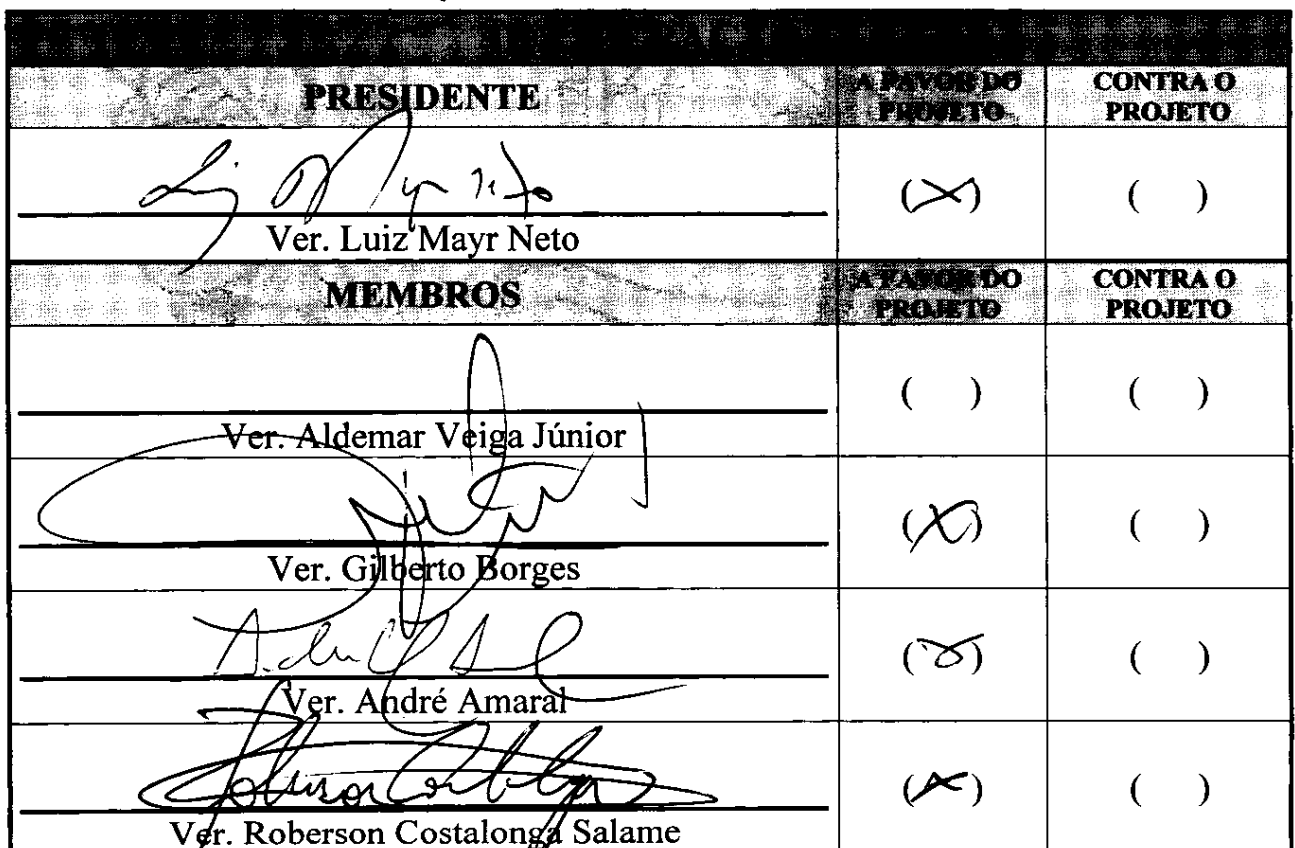 PRESIDENTE A FAVOR DO PROJETO CONTRA O PROJETO
(X) ( )
Ver. Luiz Mayr Neto
MEMBROS A FAVOR DO PROJETO CONTRA O PROJETO
( ) ( )
Ver. Aldemar Veiga Júnior
(X) ( )
Ver. Gilberto Borges
(X) ( )
Ver. André Amaral
(X) ( )
Ver. Roberson Costalonga Salame